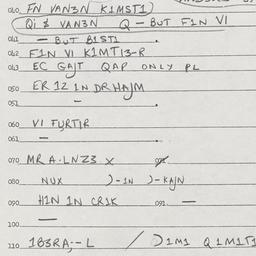 010 FN VAN3N K1MST1)
Qi & VAN3N Q - BUT F1N VI
011 — BUT B1ST1 .
012 F1N VI K1MT13-R
013 EC GAJT QAP ONLY PL
050 ER 12 1N DR HAJM
051 — .
060 VI FURT1R
061 — .
070 MR A·LNZ3 X
080 NUX )-1N )-KAJN
090 H1N 1N CR1K 091. —
100 —
110 183RA;-- L / )1M1 Q1M1T1